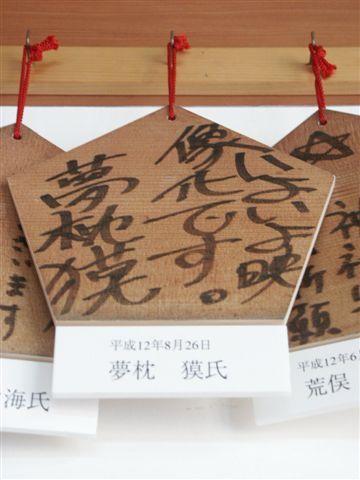 いよいよ映
像化です。
夢枕獏
平成12年8月26日
夢枕　獏氏
ます
海氏
祈願
平成12年6
荒俣